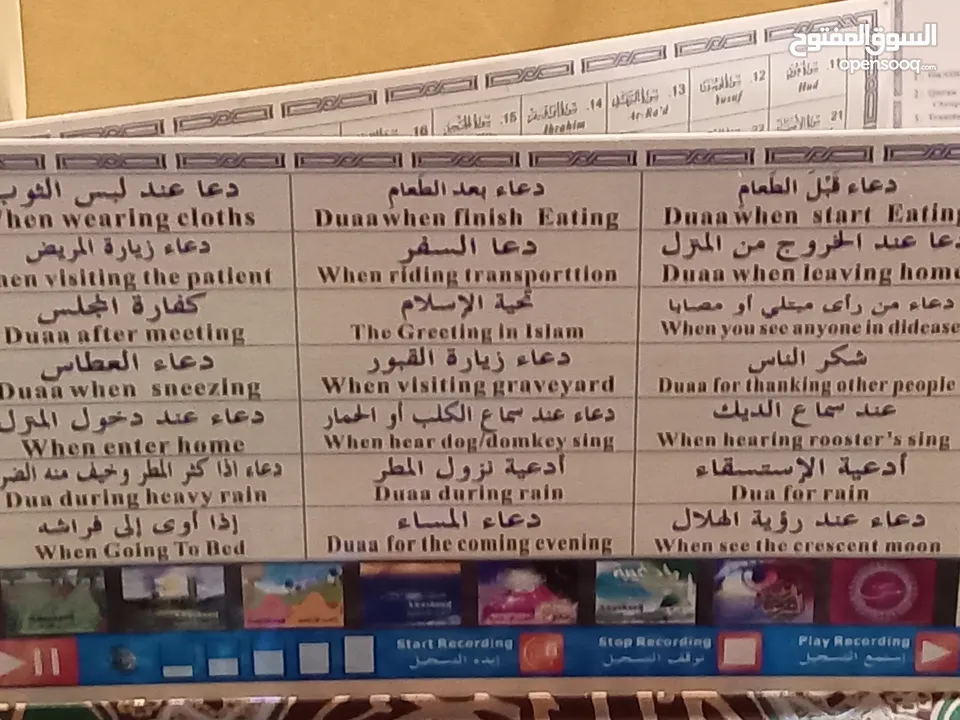 السوق المفتوح
opensooq.com
16 .15 .14 .13 .12 .11
Ibrahim Ar-Ra'd Yusuf Hud
22 21
دعاء قَبْلَ الطَعام دعاء بعد الطَعام دعا عند لبس الثوب
Duaa when start Eating Duaa when finish Eating When wearing cloths
دعا عند الخروج من المنزل دعا السفر دعاء زيارة المريض
Duaa when leaving home When riding transporttion visiting the patient
دعاء من رأى مبتلي أو مصابا تحية الإسلام كفارة المجلس
When you see anyone in didease The Greeting in Islam Duaa after meeting
شكر الناس دعاء زيارة القبور دعاء العطاس
Duaa for thanking other people When visiting graveyard Duaa when sneezing
عند سماع الديك دعاء عند سماع الكلب أو الحمار دعاء عند دخول المنزل
When hearing rooster's sing When hear dog/domkey sing When enter home
أدعية الإستسقاء أدعية نزول المطر دعاء اذا كثر المطر وخيف منه
Dua for rain Duaa during rain Dua during heavy rain
دعاء عند رؤية الهلال دعاء المساء إذا أوى إلى فراشه
When see the crescent moon Duaa for the coming evening When Going To Bed
Start Recording Stop Recording Play Recording